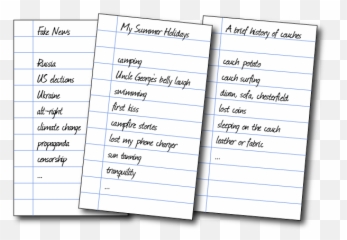 Fake News
Russia
US elections
Ukraine
alt-right
climate change
propaganda
censorship
...
My Summer Holidays
camping
Uncle Georges belly laugh
swimming
first kiss
campfire stories
lost my phone charger
sun tanning
tranquility
...
A brief history of couches
couch potato
couch surfing
divan, sofa, chesterfield
lost coins
sleeping on the couch
leather or fabric
...